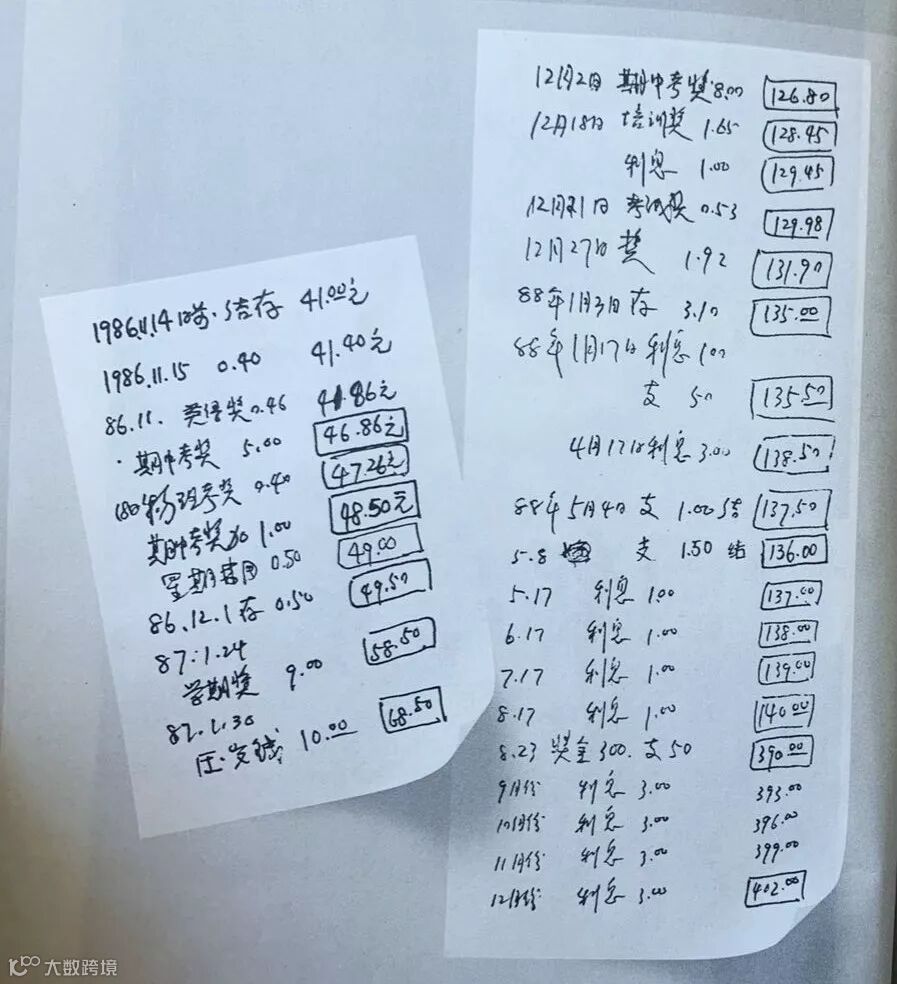 1986.11.14日前.结存 41.00元
1986.11.15 0.40 41.40元
86.11. 英语奖0.46 41.86元
期中考奖 5.00 46.86元
物理考奖 0.40 47.26元
期中考奖加 1.00 48.50元
星期 0.50 49.00
86.12.1存 0.50 49.50
87.1.24
学期奖 9.00 58.50
87.1.30
压岁钱 10.00 68.50
12月2日 期中考奖 8.00 126.80
12月18日 培训奖 1.65 128.45
利息 1.00 129.45
12月21日 考试奖 0.53 129.98
12月27日 奖 1.92 131.90
88年1月3日存 3.10 135.00
88年1月17日利息 1.00
支 50 135.50
4月17日利息 3.00 138.50
88年5月4日 支 1.00结 137.50
5.8 支 1.50 结 136.00
5.17 利息 1.00 137.00
6.17 利息 1.00 138.00
7.17 利息 1.00 139.00
8.17 利息 1.00 140.00
8.23 奖金300. 支50 390.00
9月份 利息 3.00 393.00
10月份 利息 3.00 396.00
11月份 利息 3.00 399.00
12月份 利息 3.00 402.00
大数跨境